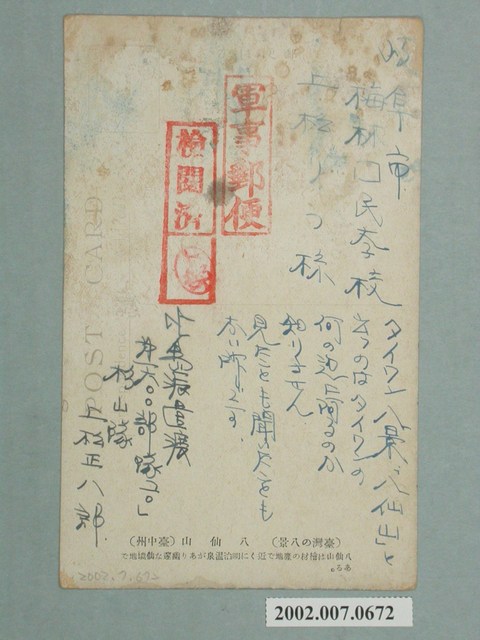 岐阜市
梅林国民学校
上松リつ様
軍事郵便
検閲済
POST CARD
タイワン八景「八仙山」と
云うのはタイワンの
何の辺に在るのか
知りません
見たことも聞いたことも
ない所です。
杉山隊
上松正八郎
(臺灣の八景) 八仙山 (臺中州)
八仙山は檜材の産地で近くに明治温泉があり幽邃な仙境地で
ある。
2002.7.672
2002.007.0672